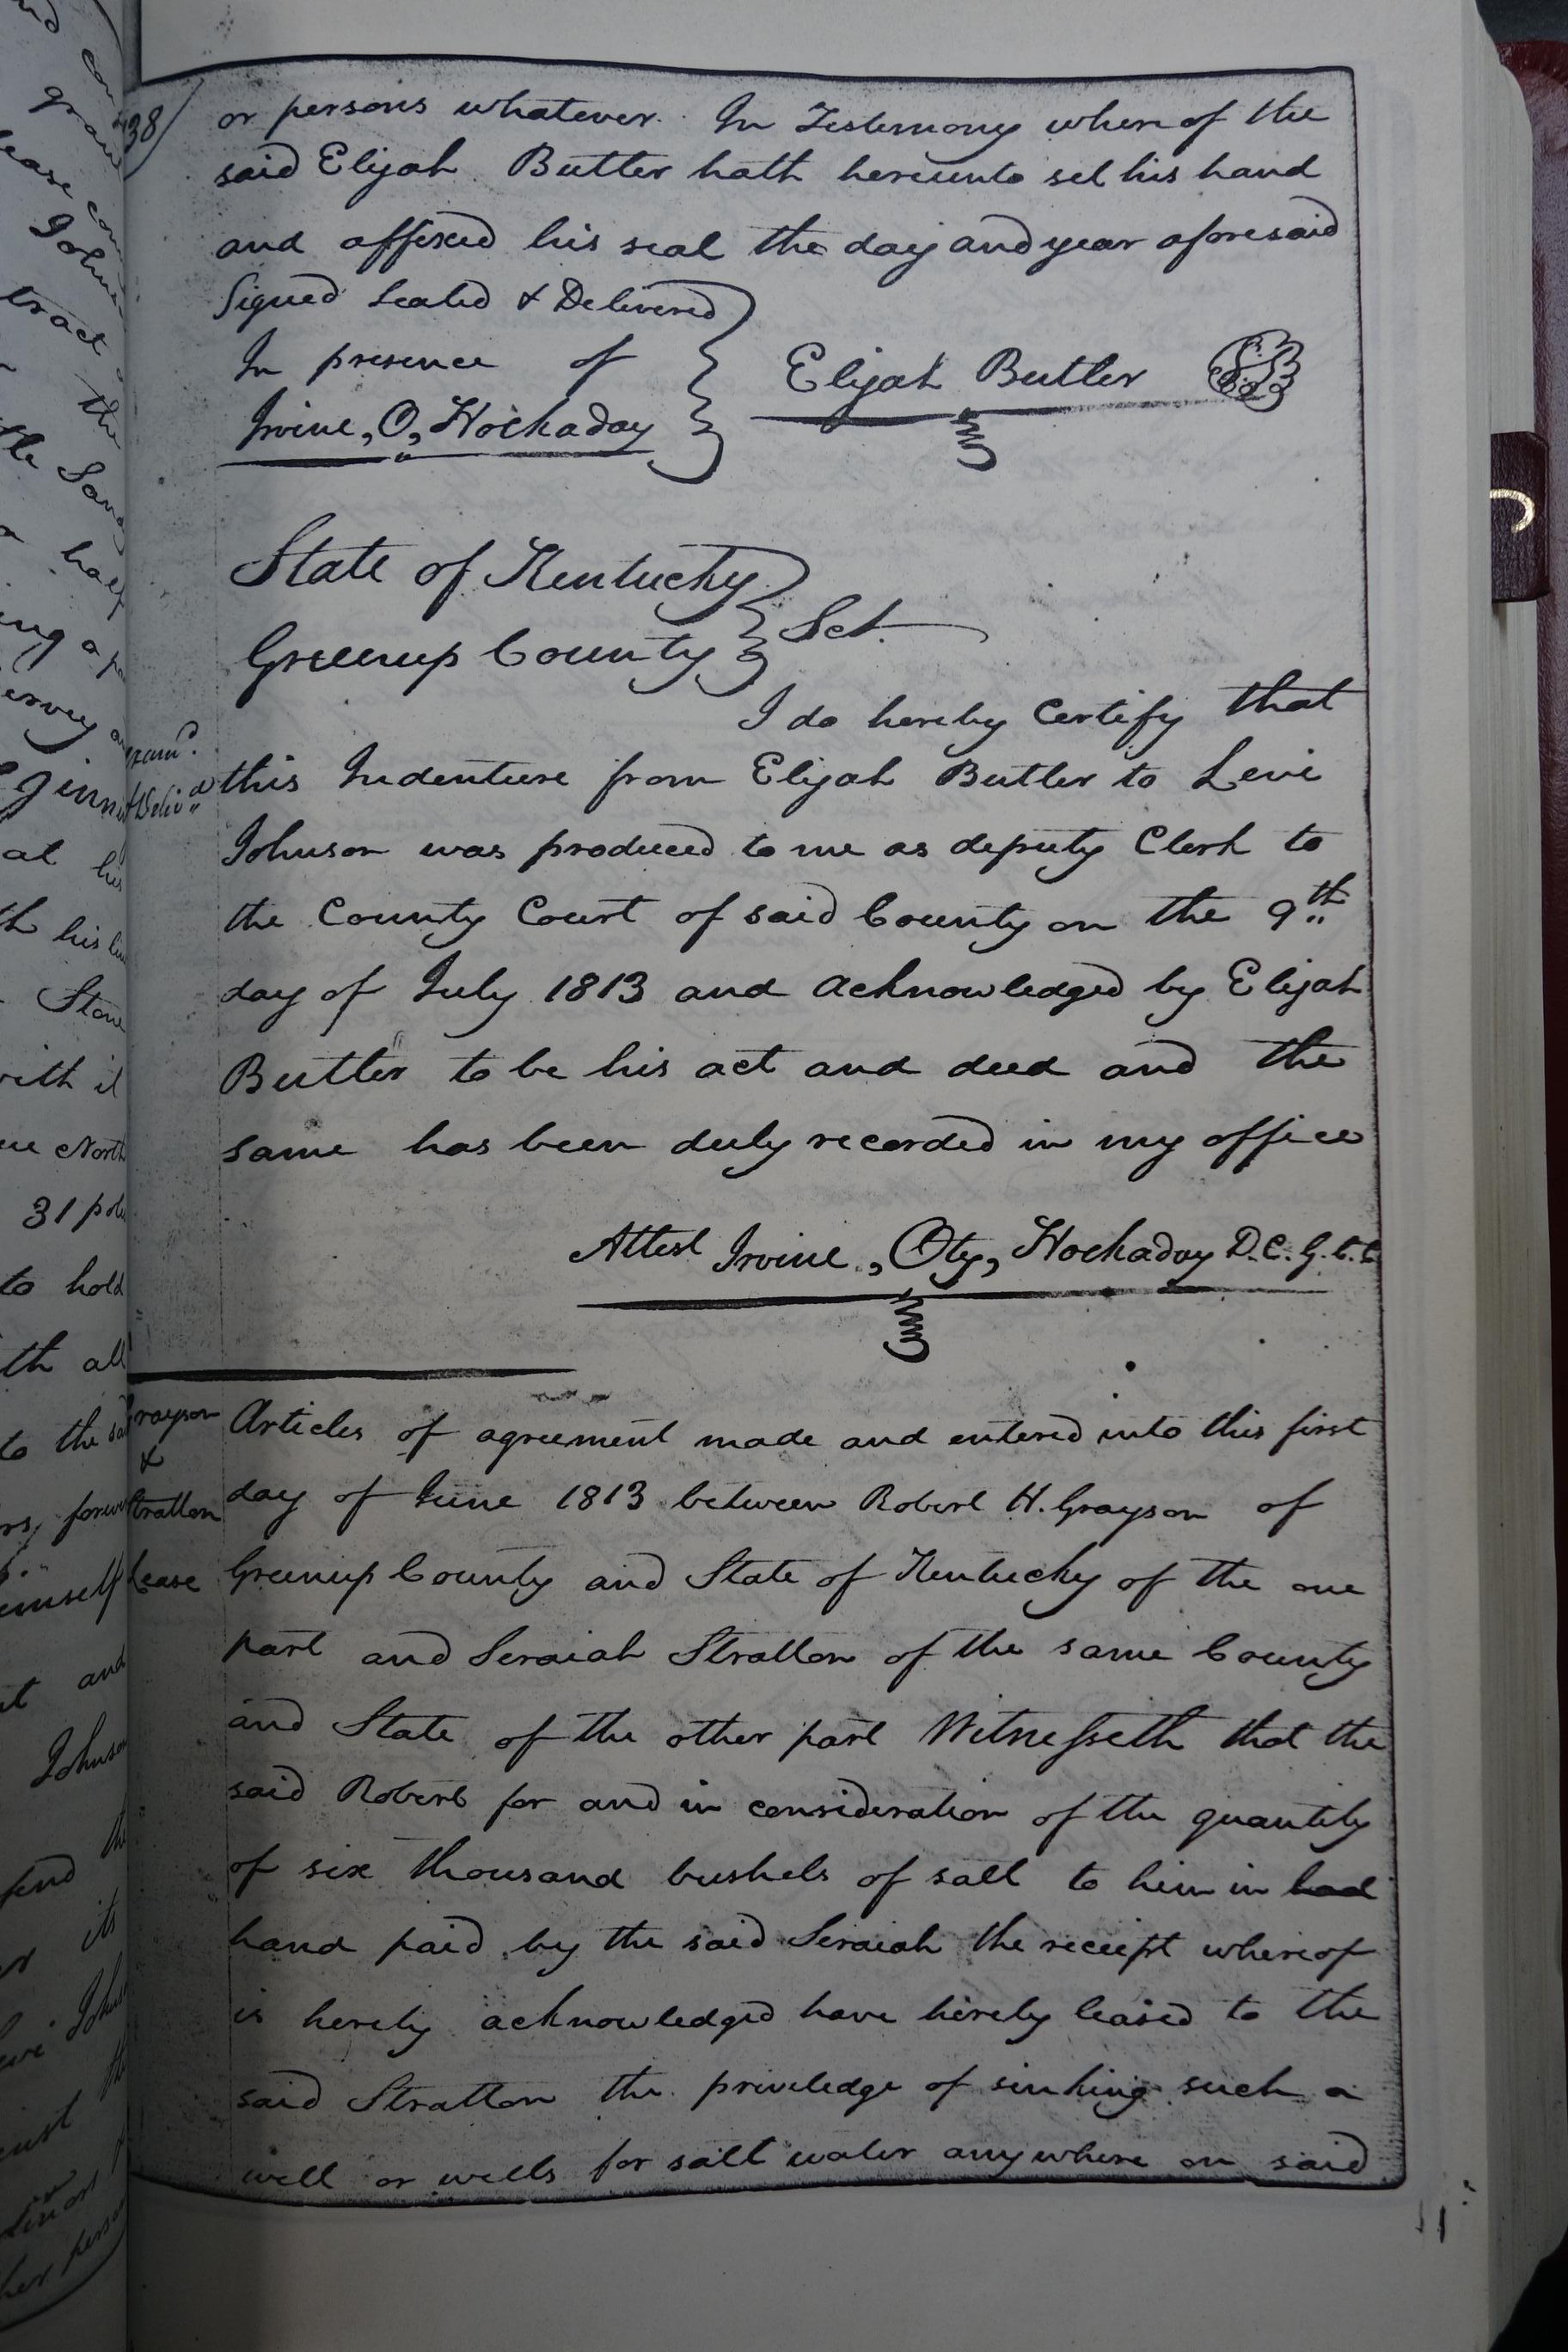 38/
or persons whatever. In Testimony whereof the
said Elijah Butler hath hereunto set his hand
and affixed his seal the day and year aforesaid
Signed Sealed & Delivered
In presence of
Irvine, O, Hockaday
Elijah Butler
State of Kentucky
Greenup County
Sct.
I do hereby Certify that
this Indenture from Elijah Butler to Levi
Johnson was produced to me as deputy Clerk to
the County Court of said County on the 9th
day of July 1813 and acknowledged by Elijah
Butler to be his act and deed and the
same has been duly recorded in my office
Attest Irvine, Oty, Hockaday D.C.G.C.C
Grayson
&
Stratton
Lease
Articles of agreement made and entered into this first
day of June 1813 between Robert H. Grayson of
Greenup County and State of Kentucky of the one
part and Seraiah Stratton of the same County
and State of the other part Witnesseth that the
said Robert for and in consideration of the quantity
of six thousand bushels of salt to him in had
hand paid by the said Seraiah the receipt whereof
is hereby acknowledged have hereby leased to the
said Stratton the priviledge of sinking such a
well or wells for salt water anywhere on said